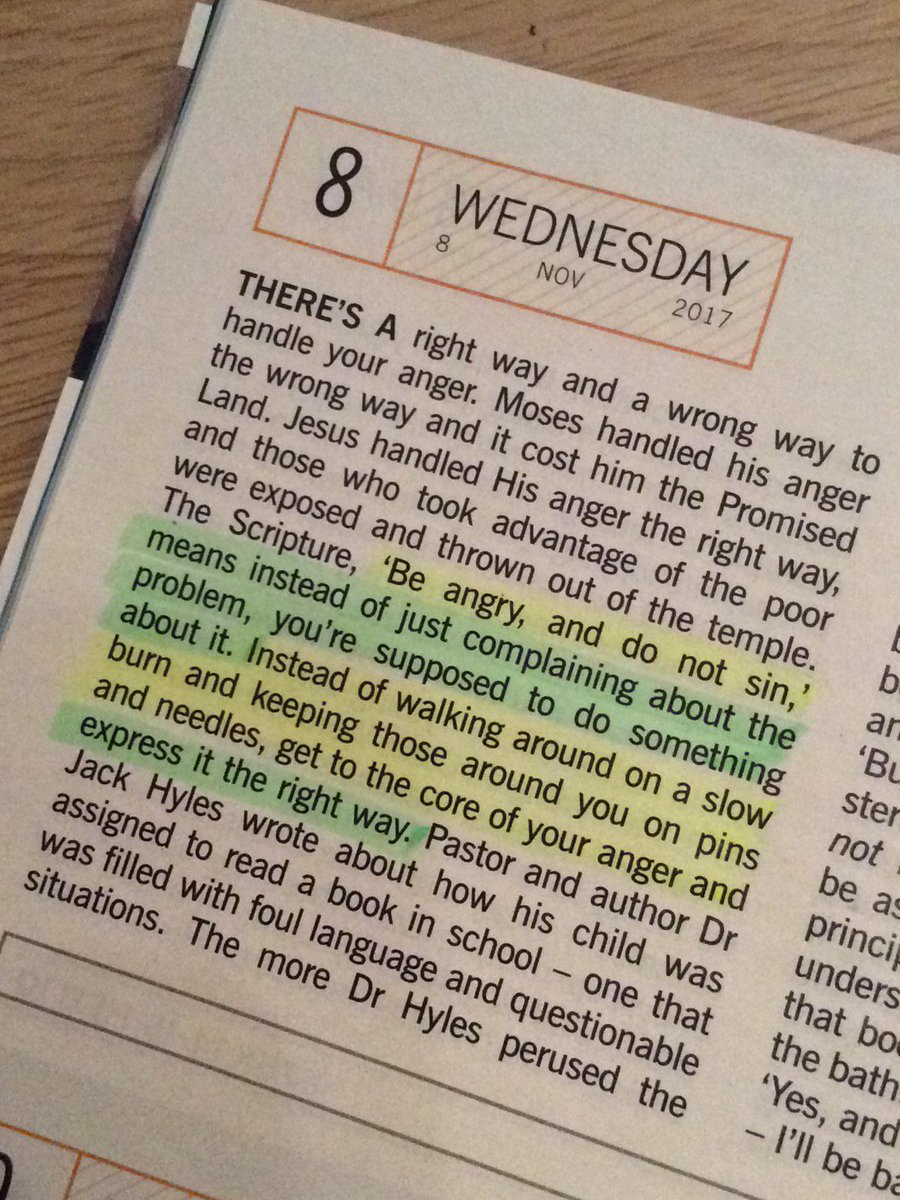 8
WEDNESDAY
8 NOV 2017
THERE'S A right way and a wrong way to
handle your anger. Moses handled his anger
the wrong way and it cost him the Promised
Land. Jesus handled His anger the right way,
and those who took advantage of the poor
were exposed and thrown out of the temple.
The Scripture, ‘Be angry, and do not sin,’
means instead of just complaining about the
problem, you're supposed to do something
about it. Instead of walking around on a slow
burn and keeping those around you on pins
and needles, get to the core of your anger and
express it the right way. Pastor and author Dr
Jack Hyles wrote about how his child was
assigned to read a book in school – one that
was filled with foul language and questionable
situations. The more Dr Hyles perused the
an
‘Bu
ster
not
be as
princip
unders
that bo
the bath
‘Yes, and
– I'll be ba